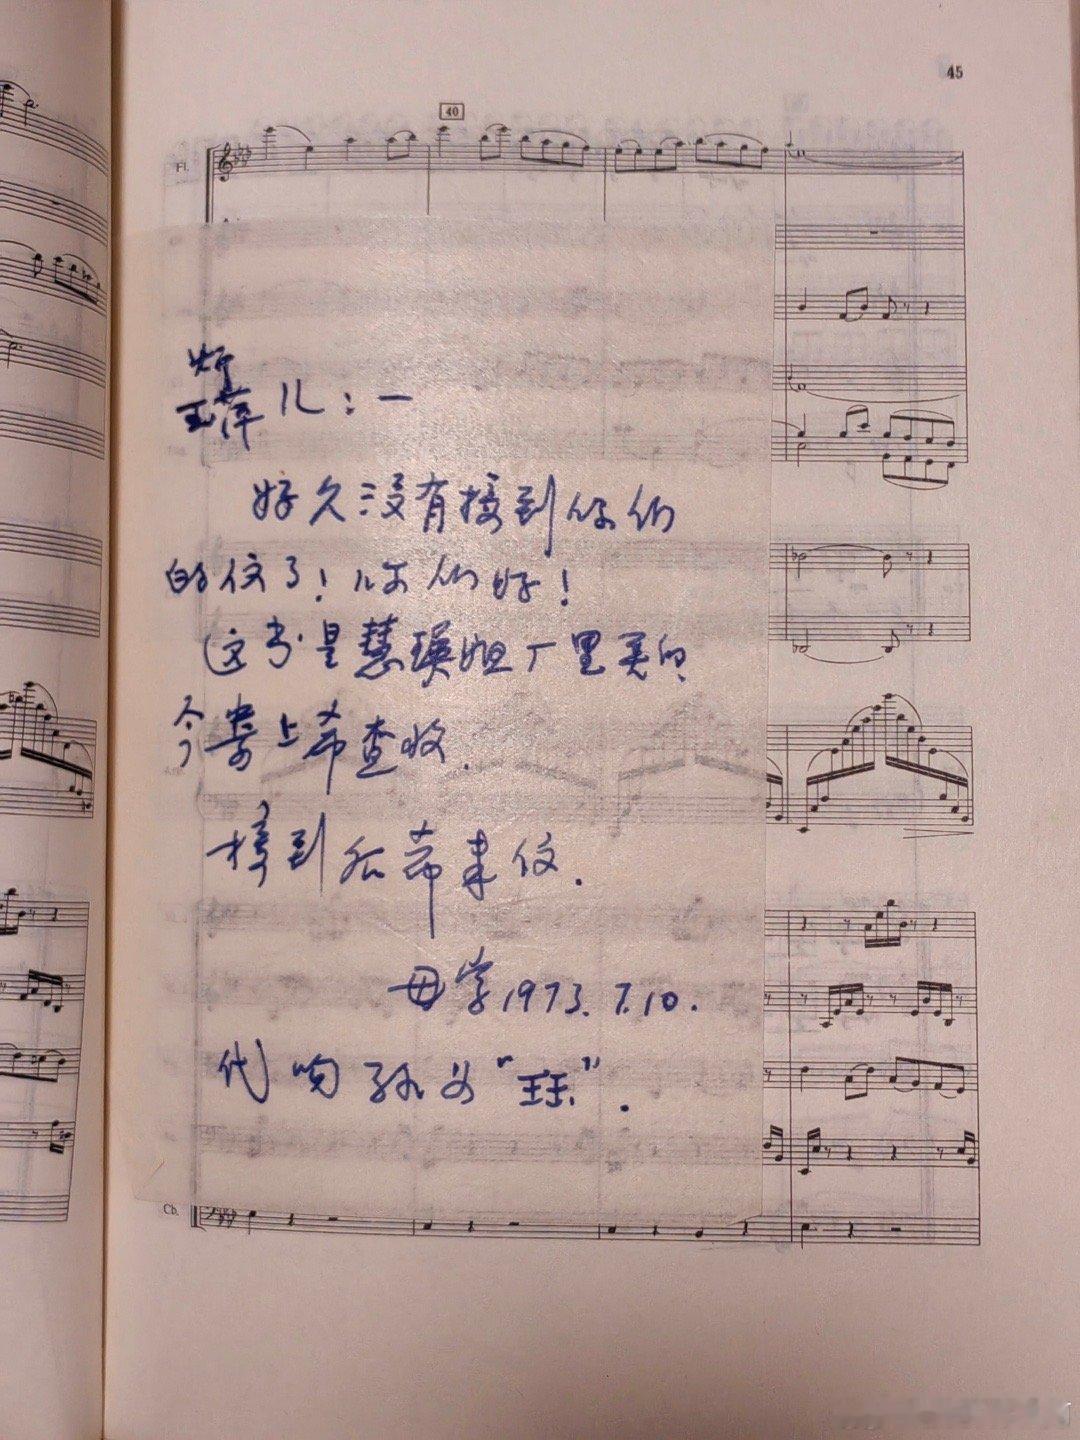 45
40
Fl.
炘
玉萍 儿：一
好久没有接到你们
的信了！你们好！
这书是慧瑛姐厂里买的
今寄上希查收.
接到后希来信.
母字1973.7.10.
代吻孙女“珏”.
Cb.